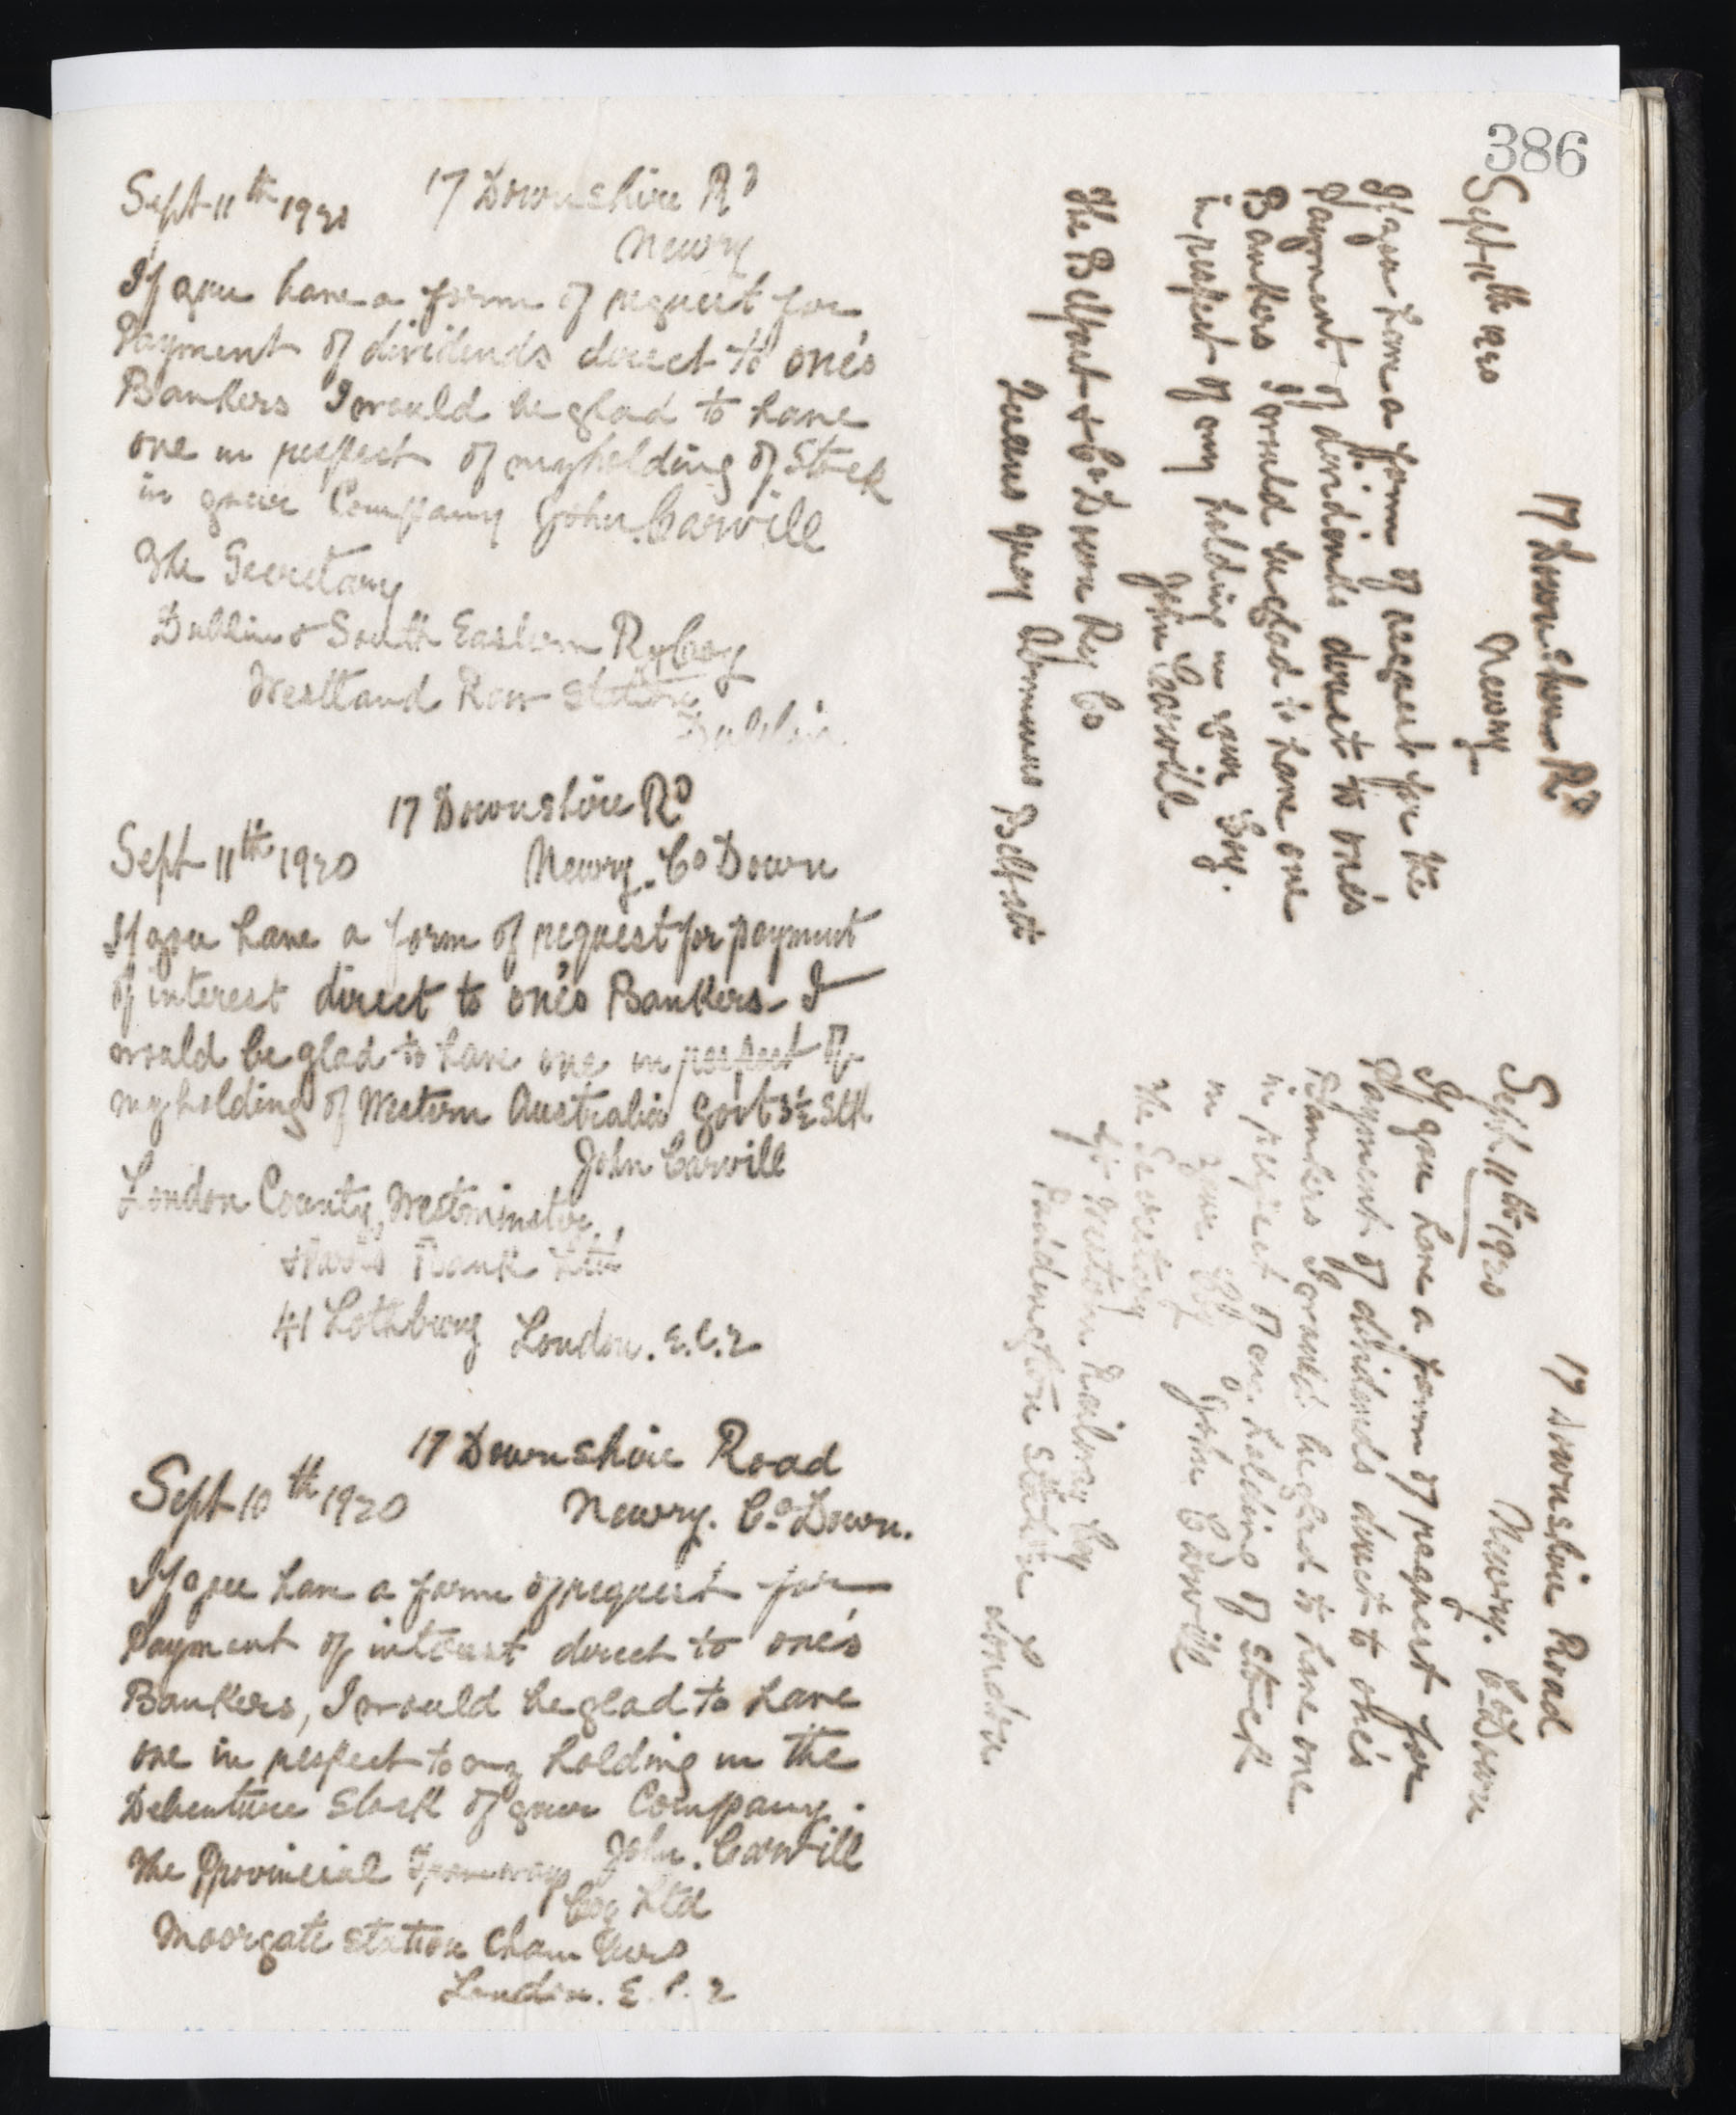 386
17 Downshire Rd
Sept 11th 1920
Newry
If you have a form of request for
Payment of dividends direct to one's
Bankers I would be glad to have
one in respect of my holding of Stock
in your Company John Carvill
The Secretary
Dublin & South Eastern Ry Coy
Westland Row Station
Dublin.
17 Downshire Rd
Sept 11th 1920 Newry. Co Down
If you have a form of request for payment
of interest direct to one's Bankers I
would be glad to have one in respect of
my holding of Western Australia Govt 3½ Stk
John Carvill
London County, Westminster,
& Parrs Bank Ltd
41 Lothbury London. E.C.2
17 Downshire Road
Sept 10th 1920 Newry. Co Down.
If you have a form of request for
Payment of interest direct to one's
Bankers, I would be glad to have
one in respect to my holding in the
Debenture Stock of your Company.
John. Carvill
The Provincial Tramways
Coy Ltd
Moorgate Station Chambers
London. E.C.2
17 Downshire Rd
Sept 11th 1920 Newry
If you have a form of request for the
Payment of dividends direct to one's
Bankers I would be glad to have one
in respect of my holding in your Coy.
John Carvill
The Belfast & Co Down Ry Co
Queens Quay Belfast
17 Downshire Road
Sept 11th 1920 Newry. Co Down
If you have a form of request for
Payment of dividends direct to one's
Bankers I would be glad to have one
in respect of my holding of Stock
in your Coy John Carvill
The Secretary
Gt Western Railway Coy
Paddington Station London.